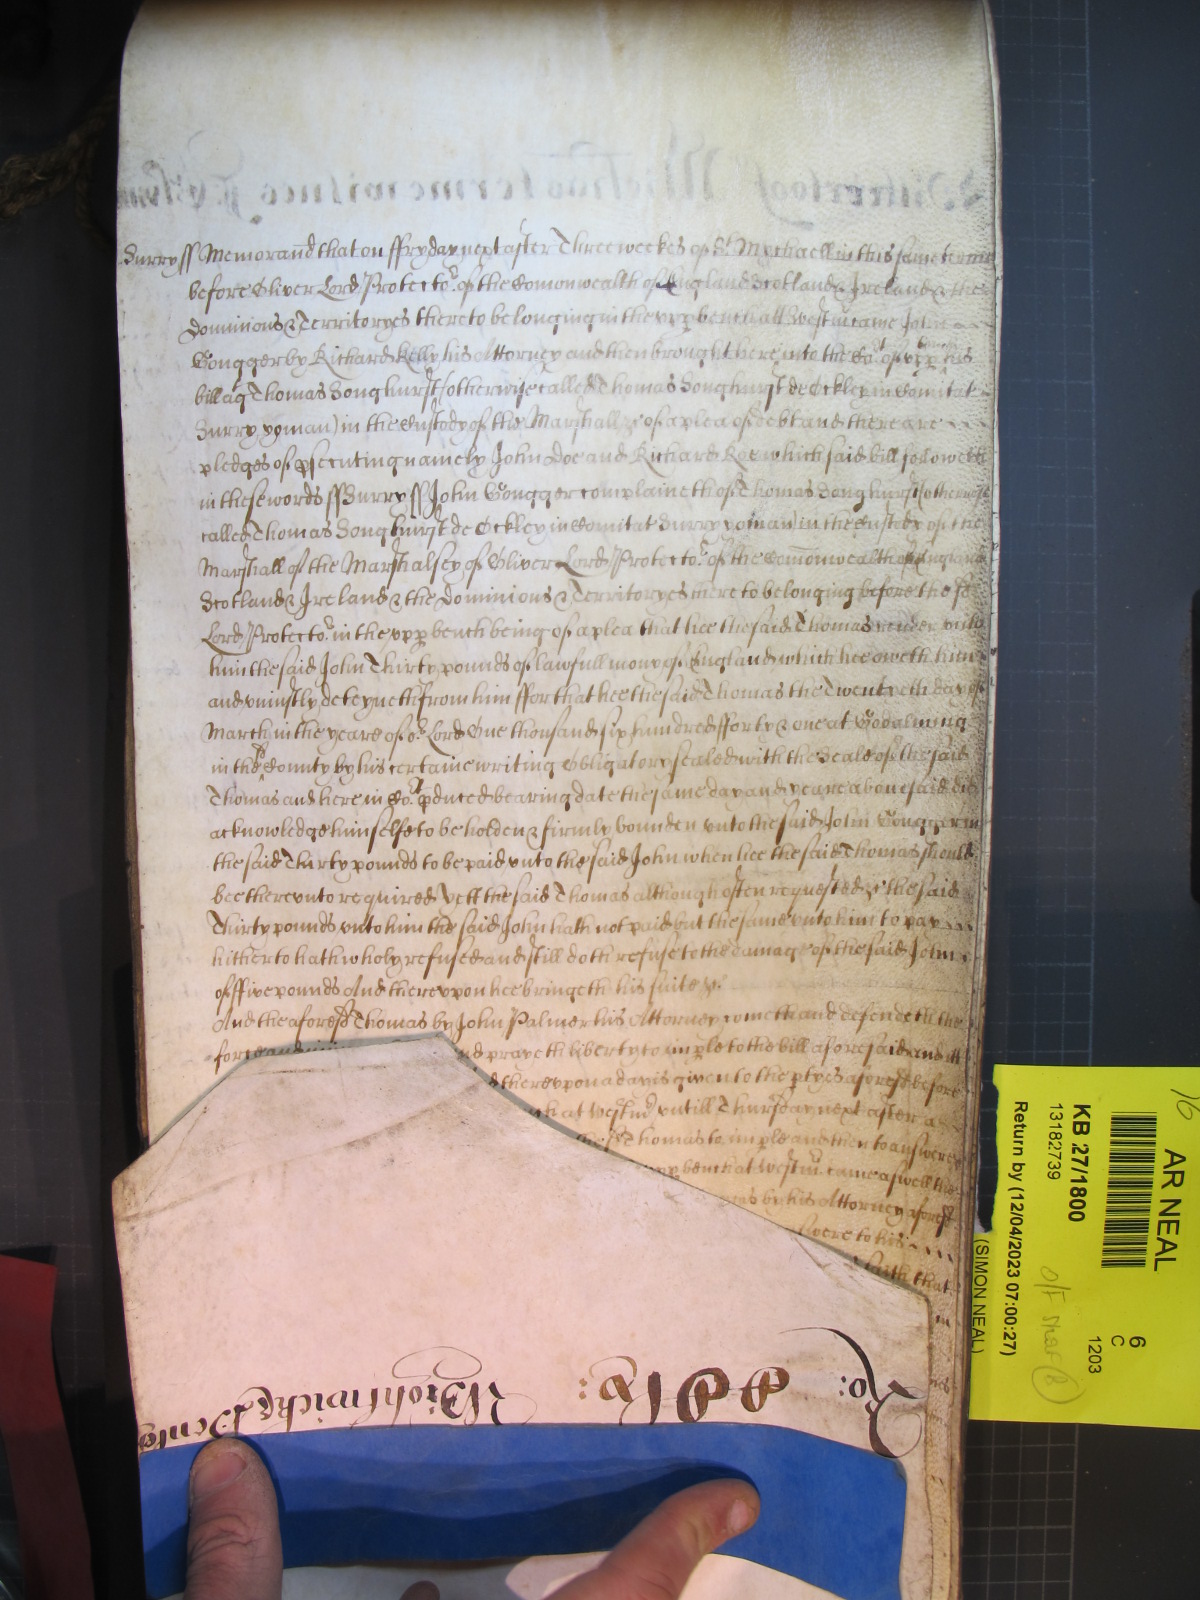 Surry ss Memorand that on ffryday next after Three weekes of St Mychaell in this same terme
before Oliver Lord Protector of the Comonwealth of England Scotland & Ireland & the
Dominions & Territoryes thereto belonging in the upp bench att Westm came John
Gongger by Richard Kelly his Attorney and then brought here into the Cot of upp bench his
bill agt Thomas Songhurst (otherwise called Thomas Songhurst de Ockley in Comitat
Surry yoman) in the Custody of the Marshall &c of a plea of debt and there are
pledges of psecuting namely John Doe and Richard Roe which said bill followeth
in these words ss Surry ss John Gongger complaineth of Thomas Songhurst (otherwise
called Thomas Songhurst de Ockley in Comitat Surry yoman) in the Custody of the
Marshall of the Marshalsey of Oliver Lord Protector of the Comonwealth of England
Scotland & Ireland & the Dominions & Territoryes thereto belonging before the sd
Lord Protector in the upp bench being of a plea that hee the said Thomas render unto
him the said John Thirty pounds of lawfull mony of England which hee oweth him
and uniustly deteyneth from him ffor that hee the said Thomas the Twentyeth day of
March in the yeare of or Lord One thousand six hundred fforty & one at Godalming
in the sd County by his certaine writing Obligatory sealed with the Seale of the said
Thomas and here in Cot pduced bearing date the same day and yeare abovesaid did
acknowledge himselfe to be holden & firmly bounden unto the said John Gongger in
the said Thirty pounds to be paid unto the said John when hee the said Thomas should
bee thereunto required Yett the said Thomas although often requested &c the said
Thirty pounds unto him the said John hath not paid but the same unto him to pay
hitherto hath wholy refused and still doth refuse to the damage of the said John
of ffive pounds And thereupon hee bringeth his suite &c
And the aforesd Thomas by John Palmer his Attorney cometh and defendeth the
force and nd prayeth liberty to imple to the bill aforesaid and itt
thereupon a day is given to the ptyes aforesd before
at Westm untill Thursday next after
Thomas to imple and then to answere
upp bench at Westm came aswell the
by his Attorney aforesd
to his
saith that
Ro:
Wightwicke
AR NEAL
KB 27/1800
13182739
Return by (12/04/2023 07:00:27)
(SIMON NEAL)
6
C
1203
16